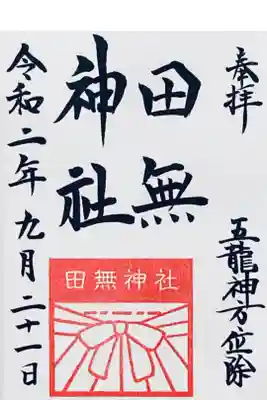 奉拝
五龍神方位除
田無
神社
田無神社
令和二年九月二十一日